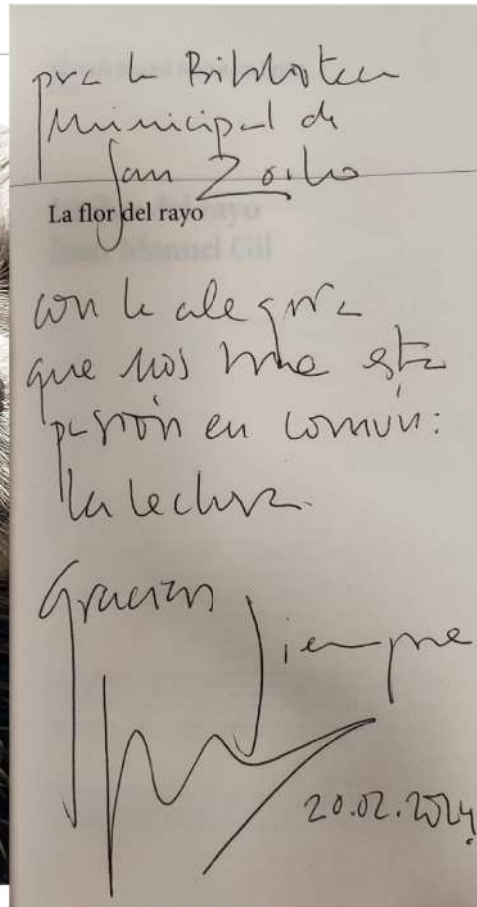 para la Biblioteca
Municipal de
San Zoilo
La flor del rayo
Juan Manuel Gil
con la alegría
que nos une esta
pasión en común:
la lectura.
Gracias siempre
20.02.2024